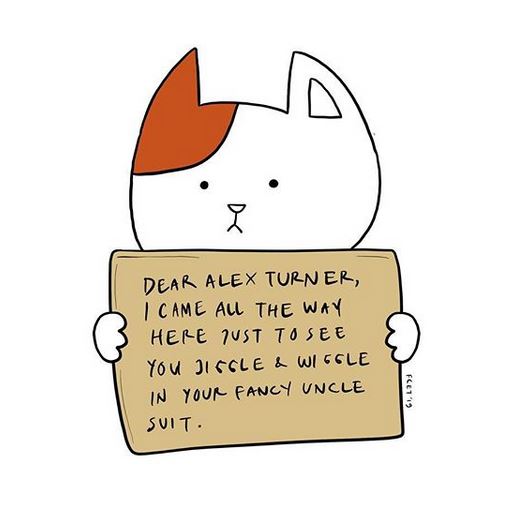 DEAR ALEX TURNER,
I CAME ALL THE WAY
HERE JUST TO SEE
YOU JIGGLE & WIGGLE
IN YOUR FANCY UNCLE
SUIT.